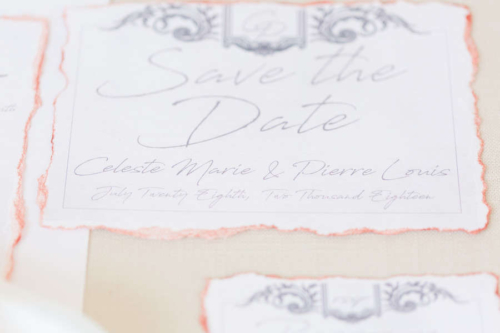 Save the
Date
Celeste Marie & Pierre Louis
July Twenty Eighth, Two Thousand Eighteen